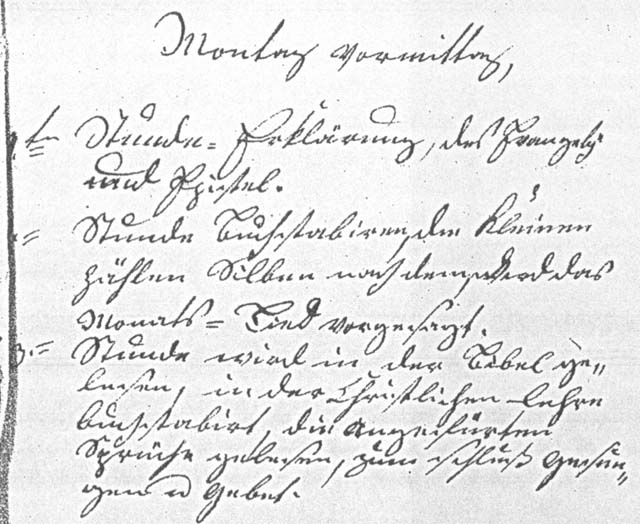 Montag Vormittag,
1te Stunde= Erklärung, des Evangely
und Epistel.
2= Stunde Buchstabiren, die Kleinen
zählen Silben nach dem, wird das
Monats= Lied vorgesagt.
3.= Stunde wird in der Bibel ge„
lesen, in der Christlichen Lehre
buchstabirt die angeführten
Sprüche gelesen, zum schluß gesun„
gen u Gebet.